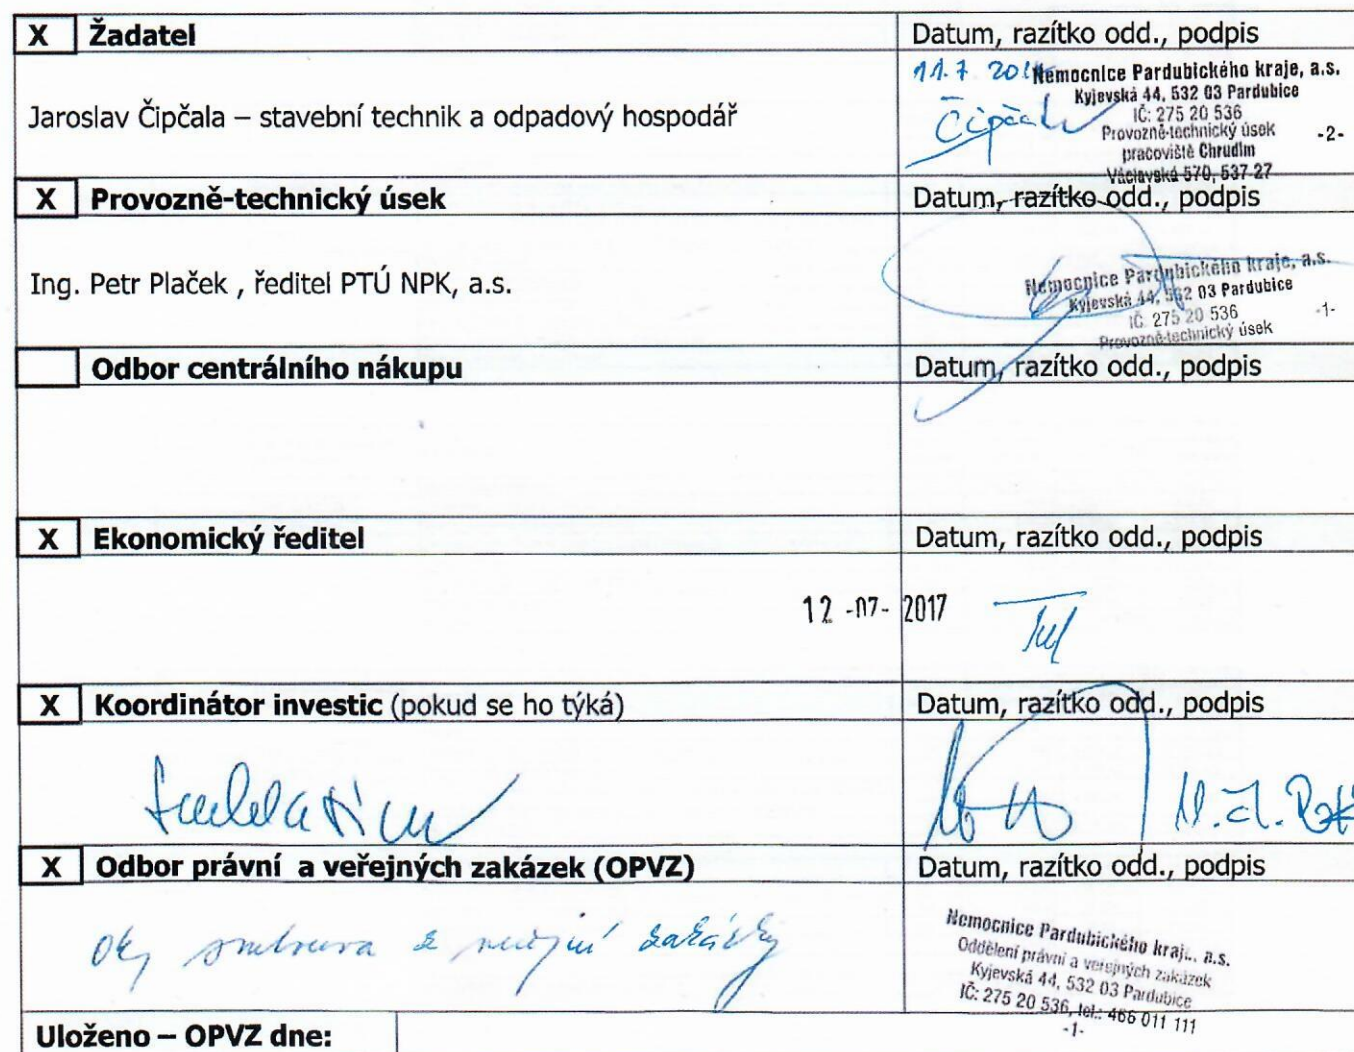 X Žadatel Datum, razítko odd., podpis
11.7 201
Jaroslav Čipčala – stavební technik a odpadový hospodář
Čipčala
Nemocnice Pardubického kraje, a.s.
Kyjevská 44, 532 03 Pardubice
IČ: 275 20 536
Provozně-technický úsek -2-
pracoviště Chrudim
Václavská 570, 537 27
X Provozně-technický úsek Datum, razítko odd., podpis
Ing. Petr Plaček , ředitel PTÚ NPK, a.s.
Nemocnice Pardubického kraje, a.s.
Kyjevská 44, 532 03 Pardubice
IČ: 275 20 536 -1-
Provozně-technický úsek
Odbor centrálního nákupu Datum, razítko odd., podpis
X Ekonomický ředitel Datum, razítko odd., podpis
12 -07- 2017
X Koordinátor investic (pokud se ho týká) Datum, razítko odd., podpis
X Odbor právní a veřejných zakázek (OPVZ) Datum, razítko odd., podpis
Ok, smlouva z veřejné zakázky
Nemocnice Pardubického kraje, a.s.
Oddělení právní a veřejných zakázek
Kyjevská 44, 532 03 Pardubice
IČ: 275 20 536, tel.: 466 011 111
-1-
Uloženo – OPVZ dne: